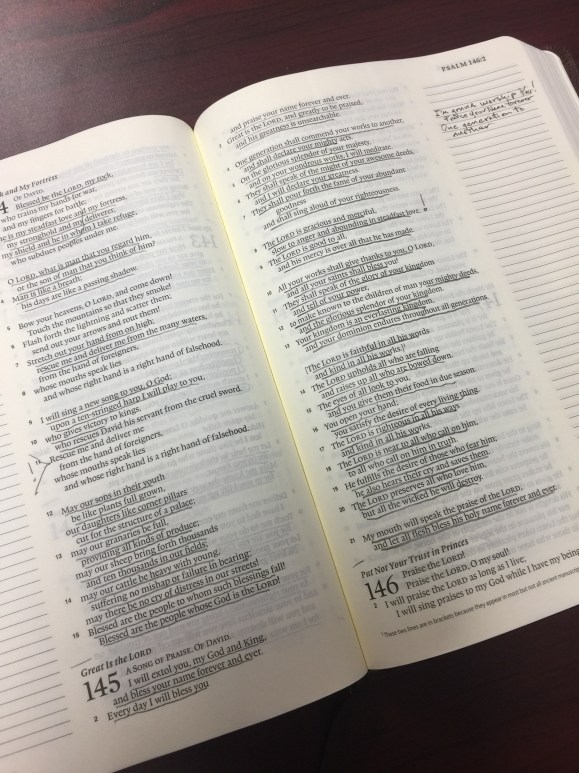 k and My Fortress
4 OF DAVID.
Blessed be the LORD, my rock,
who trains my hands for war,
and my fingers for battle;
he is my steadfast love and my fortress,
my stronghold and my deliverer,
my shield and he in whom I take refuge,
who subdues peoples under me.
O LORD, what is man that you regard him,
or the son of man that you think of him?
4 Man is like a breath;
his days are like a passing shadow.
5 Bow your heavens, O LORD, and come down!
Touch the mountains so that they smoke!
6 Flash forth the lightning and scatter them;
send out your arrows and rout them!
7 Stretch out your hand from on high;
rescue me and deliver me from the many waters,
from the hand of foreigners,
8 whose mouths speak lies
and whose right hand is a right hand of falsehood.
9 I will sing a new song to you, O God;
upon a ten-stringed harp I will play to you,
10 who gives victory to kings,
who rescues David his servant from the cruel sword.
11 Rescue me and deliver me
from the hand of foreigners,
whose mouths speak lies
and whose right hand is a right hand of falsehood.
12 May our sons in their youth
be like plants full grown,
our daughters like corner pillars
cut for the structure of a palace;
13 may our granaries be full,
providing all kinds of produce;
may our sheep bring forth thousands
and ten thousands in our fields;
14 may our cattle be heavy with young,
suffering no mishap or failure in bearing;
may there be no cry of distress in our streets!
15 Blessed are the people to whom such blessings fall!
Blessed are the people whose God is the LORD!
Great Is the LORD
145 A SONG OF PRAISE. OF DAVID.
I will extol you, my God and King,
and bless your name forever and ever.
2 Every day I will bless you
PSALM 146:2
and praise your name forever and ever.
3 Great is the LORD, and greatly to be praised,
and his greatness is unsearchable.
4 One generation shall commend your works to another,
and shall declare your mighty acts.
5 On the glorious splendor of your majesty,
and on your wondrous works, I will meditate.
6 They shall speak of the might of your awesome deeds,
and I will declare your greatness.
7 They shall pour forth the fame of your abundant
goodness
and shall sing aloud of your righteousness.
8 The LORD is gracious and merciful,
slow to anger and abounding in steadfast love.
9 The LORD is good to all,
and his mercy is over all that he has made.
10 All your works shall give thanks to you, O LORD,
and all your saints shall bless you!
11 They shall speak of the glory of your kingdom
and tell of your power,
12 to make known to the children of man your mighty deeds,
and the glorious splendor of your kingdom.
13 Your kingdom is an everlasting kingdom,
and your dominion endures throughout all generations.
[The LORD is faithful in all his words
and kind in all his works.]¹
14 The LORD upholds all who are falling
and raises up all who are bowed down.
15 The eyes of all look to you,
and you give them their food in due season.
16 You open your hand;
you satisfy the desire of every living thing.
17 The LORD is righteous in all his ways
and kind in all his works.
18 The LORD is near to all who call on him,
to all who call on him in truth.
19 He fulfills the desire of those who fear him;
he also hears their cry and saves them.
20 The LORD preserves all who love him,
but all the wicked he will destroy.
21 My mouth will speak the praise of the LORD,
and let all flesh bless his holy name forever and ever.
Put Not Your Trust in Princes
146 Praise the LORD!
Praise the LORD, O my soul!
2 I will praise the LORD as long as I live;
I will sing praises to my God while I have my being
¹ These two lines are in brackets because they appear in most but not all ancient manuscrip
I'm gonna worship You!
Praise your Name forever
One generation to
another